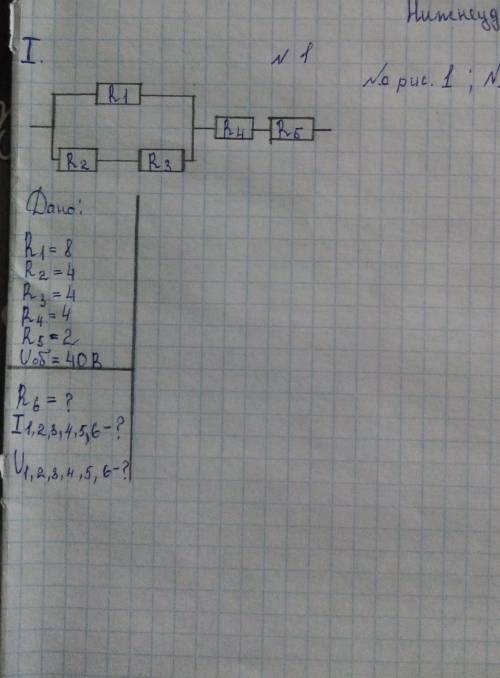 Нижнеуд
I.
N 1
No рис. 1 ; N
R1
R2 R3 R4 R5
Дано:
R1 = 8
R2 = 4
R3 = 4
R4 = 4
R5 = 2
Uоб = 40 В
R6 = ?
I1,2,3,4,5,6 - ?
U1,2,3,4,5,6 - ?